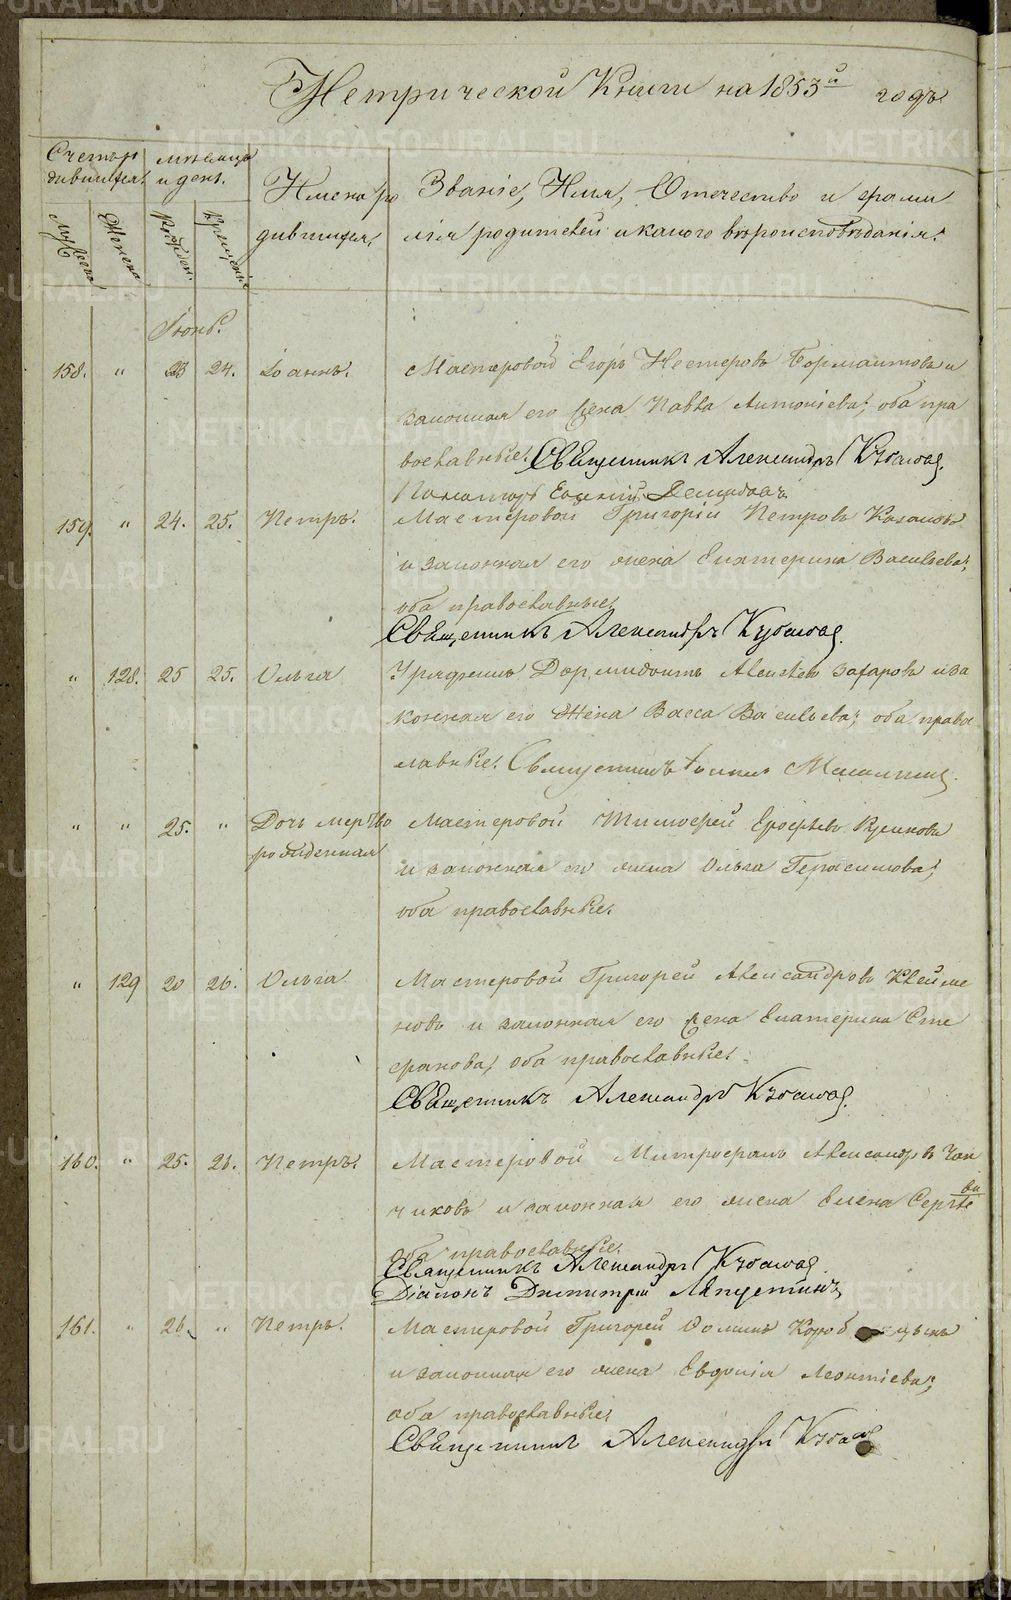 Метрической Книги на 1853й годъ
Счетъ ро
дившихся.
мѣсяцъ
и день.
Имена ро
дившихся,
Званіе, Имя, Отечество и фами
лія родителей и какого вѣроисповѣданія.
Мужеска
Женска
Рожден.
Крещенія
Іюнь.
158. " 23 24. Іоаннъ. Мастеровой Егоръ Нестеровъ и
законная его жена Павла Антоніева; оба пра
вославные. Священникъ Александръ
Пономарь Евгеній Демидовъ
159. " 24. 25. Петръ. Мастеровой Григорій Петровъ Казаковъ
и законная его жена Екатерина Васильева;
оба православные.
Священникъ Александръ
" 128. 25 25. Ольга Урядникъ Дормидонтъ Алексѣевъ Захаровъ и за
конная его Жена Васса Васильева; оба право
славные. Священникъ
" " 25. " Дочь мертво
рожденная
Мастеровой Тимофей Ерофѣевъ
и законная его жена Ольга Герасимова;
оба православные.
" 129 20 26. Ольга. Мастеровой Григорей Александровъ Клейме
новъ и законная его жена Екатерина Сте
фанова; оба православные.
Священникъ Александръ
160. " 25. 26. Петръ. Мастеровой Митрофанъ Александровъ
чиковъ и законная его жена Елена Сергѣе
ва
оба православные.
Священникъ Александръ
Діаконъ Димитрій Ляпустинъ
161. " 26. " Петръ. Мастеровой Григорей Фоминъ
и законная его жена Евдокія Леонтіева;
оба православные.
Священникъ Александръ
METRIKI.GASO-URAL.RU